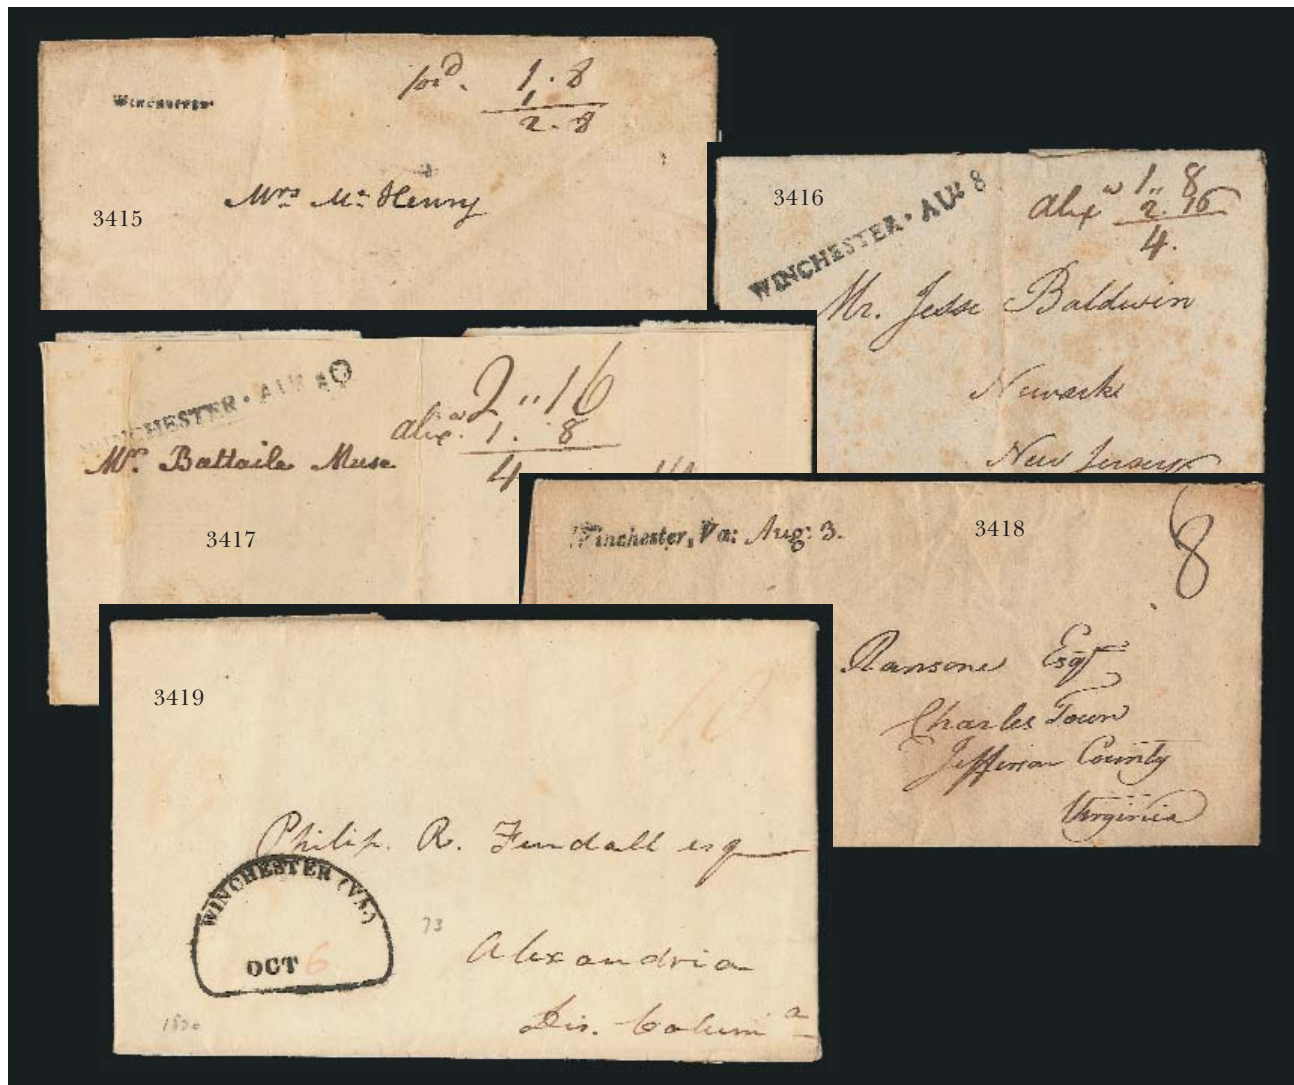 Winchester
pd. 1. 8
1
2. 8
Mrs. Mc Henry
3415
WINCHESTER · AUG 8
3416
alexa 1,, 8
2. 16
4.
Mr. Jesse Baldwin
Newark
New Jersey
WINCHESTER · AUG 20
alexa. 2,, 16
1. 8
4
Mr. Battaile Muse
3417
Winchester, Va: Aug: 3.
3418
8
Ransone Esqr
Charles Town
Jefferson County
Virginia
3419
10
Philip. R. Fendall esq
WINCHESTER (VA.)
OCT 6
73
Alexandria
Dis. Columa